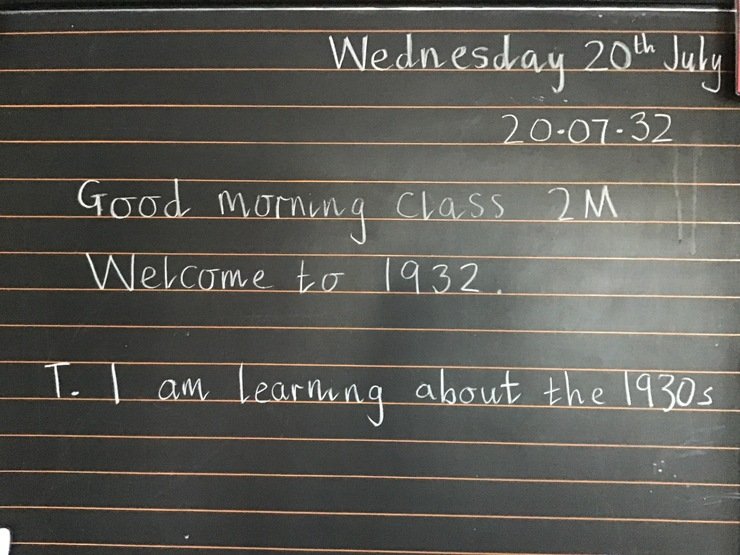 Wednesday 20th July
20.07.32
Good morning Class 2M
Welcome to 1932.
T. I am learning about the 1930s